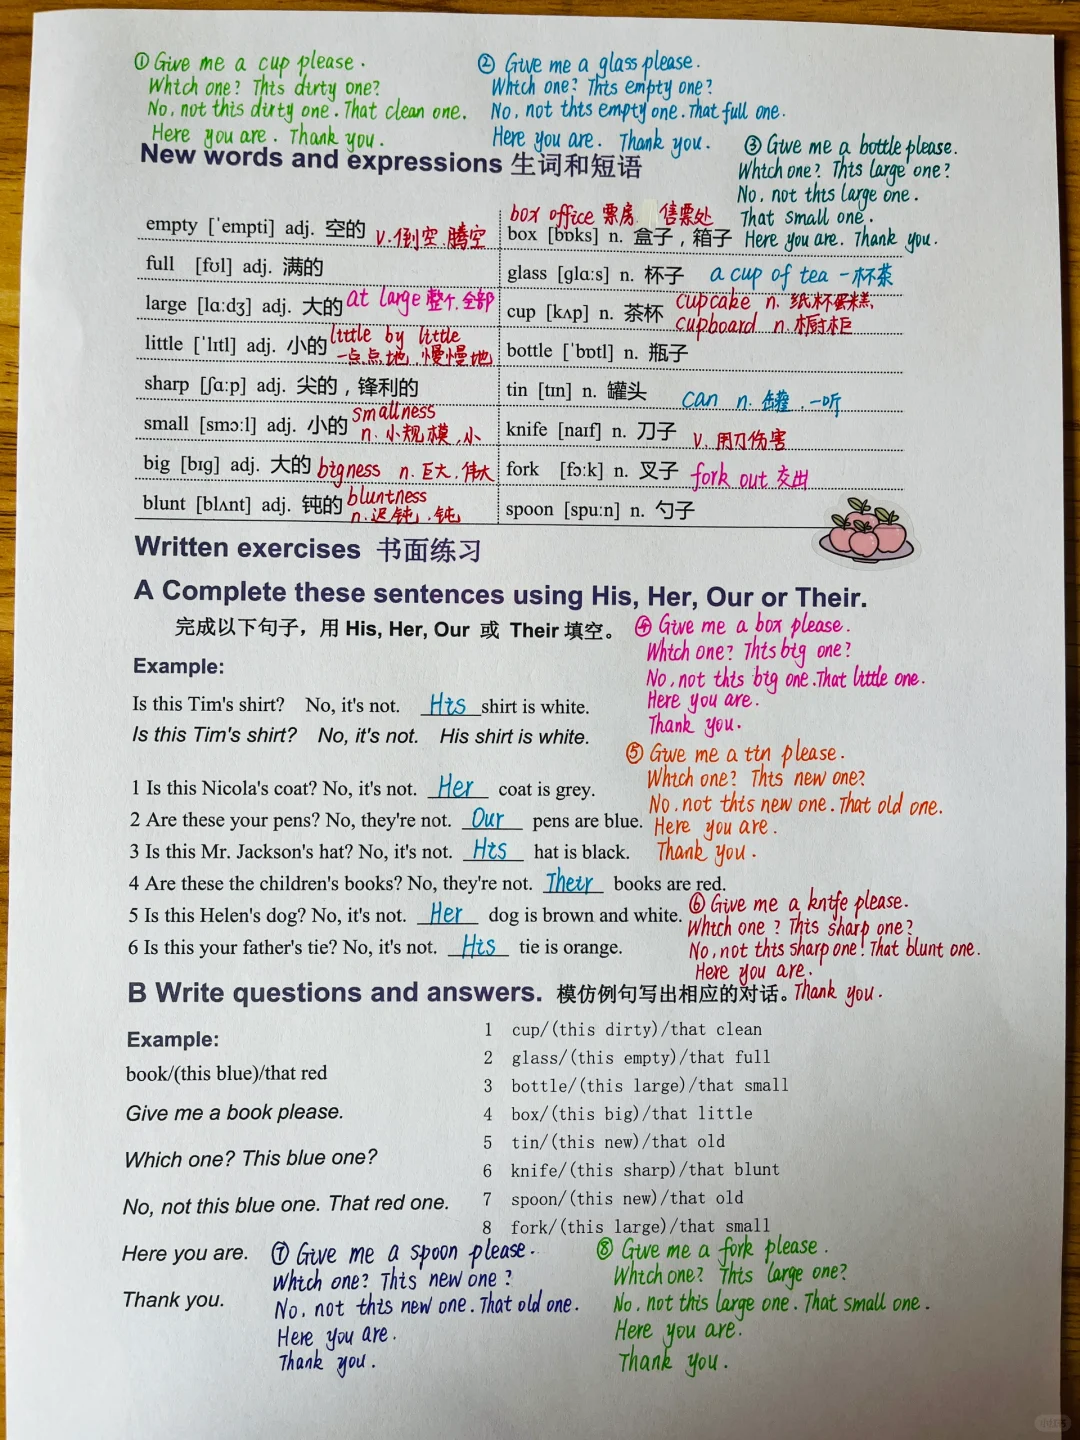 ① Give me a cup please.
Which one? This dirty one?
No, not this dirty one. That clean one.
Here you are. Thank you.
② Give me a glass please.
Which one? This empty one?
No, not this empty one. That full one.
Here you are. Thank you.
③ Give me a bottle please.
Which one? This large one?
No, not this large one.
That small one.
Here you are. Thank you.
New words and expressions 生词和短语
empty [ˈempti] adj. 空的 v.倒空.腾空
full [fʊl] adj. 满的
large [lɑːdʒ] adj. 大的 at large 整个.全部
little [ˈlɪtl] adj. 小的 little by little
一点点地.慢慢地
sharp [ʃɑːp] adj. 尖的，锋利的
small [smɔːl] adj. 小的 smallness
n.小规模.小
big [bɪɡ] adj. 大的 bigness n.巨大.伟大
blunt [blʌnt] adj. 钝的 bluntness
n.迟钝.钝
box office 票房 售票处
box [bɒks] n. 盒子，箱子
glass [ɡlɑːs] n. 杯子 a cup of tea 一杯茶
cup [kʌp] n. 茶杯 cupcake n. 纸杯蛋糕
cupboard n.橱柜
bottle [ˈbɒtl] n. 瓶子
tin [tɪn] n. 罐头 can n. 罐.一听
knife [naɪf] n. 刀子 v. 用刀伤害
fork [fɔːk] n. 叉子 fork out 交出
spoon [spuːn] n. 勺子
Written exercises 书面练习
A Complete these sentences using His, Her, Our or Their.
完成以下句子，用 His, Her, Our 或 Their 填空。
Example:
Is this Tim's shirt? No, it's not. His shirt is white.
Is this Tim's shirt? No, it's not. His shirt is white.
1 Is this Nicola's coat? No, it's not. Her coat is grey.
2 Are these your pens? No, they're not. Our pens are blue.
3 Is this Mr. Jackson's hat? No, it's not. His hat is black.
4 Are these the children's books? No, they're not. Their books are red.
5 Is this Helen's dog? No, it's not. Her dog is brown and white.
6 Is this your father's tie? No, it's not. His tie is orange.
④ Give me a box please.
Which one? This big one?
No, not this big one. That little one.
Here you are.
Thank you.
⑤ Give me a tin please.
Which one? This new one?
No, not this new one. That old one.
Here you are.
Thank you.
⑥ Give me a knife please.
Which one? This sharp one?
No, not this sharp one! That blunt one.
Here you are.
Thank you.
B Write questions and answers. 模仿例句写出相应的对话。
Example:
book/(this blue)/that red
Give me a book please.
Which one? This blue one?
No, not this blue one. That red one.
Here you are.
Thank you.
1 cup/(this dirty)/that clean
2 glass/(this empty)/that full
3 bottle/(this large)/that small
4 box/(this big)/that little
5 tin/(this new)/that old
6 knife/(this sharp)/that blunt
7 spoon/(this new)/that old
8 fork/(this large)/that small
⑦ Give me a spoon please.
Which one? This new one?
No, not this new one. That old one.
Here you are.
Thank you.
⑧ Give me a fork please.
Which one? This large one?
No, not this large one. That small one.
Here you are.
Thank you.